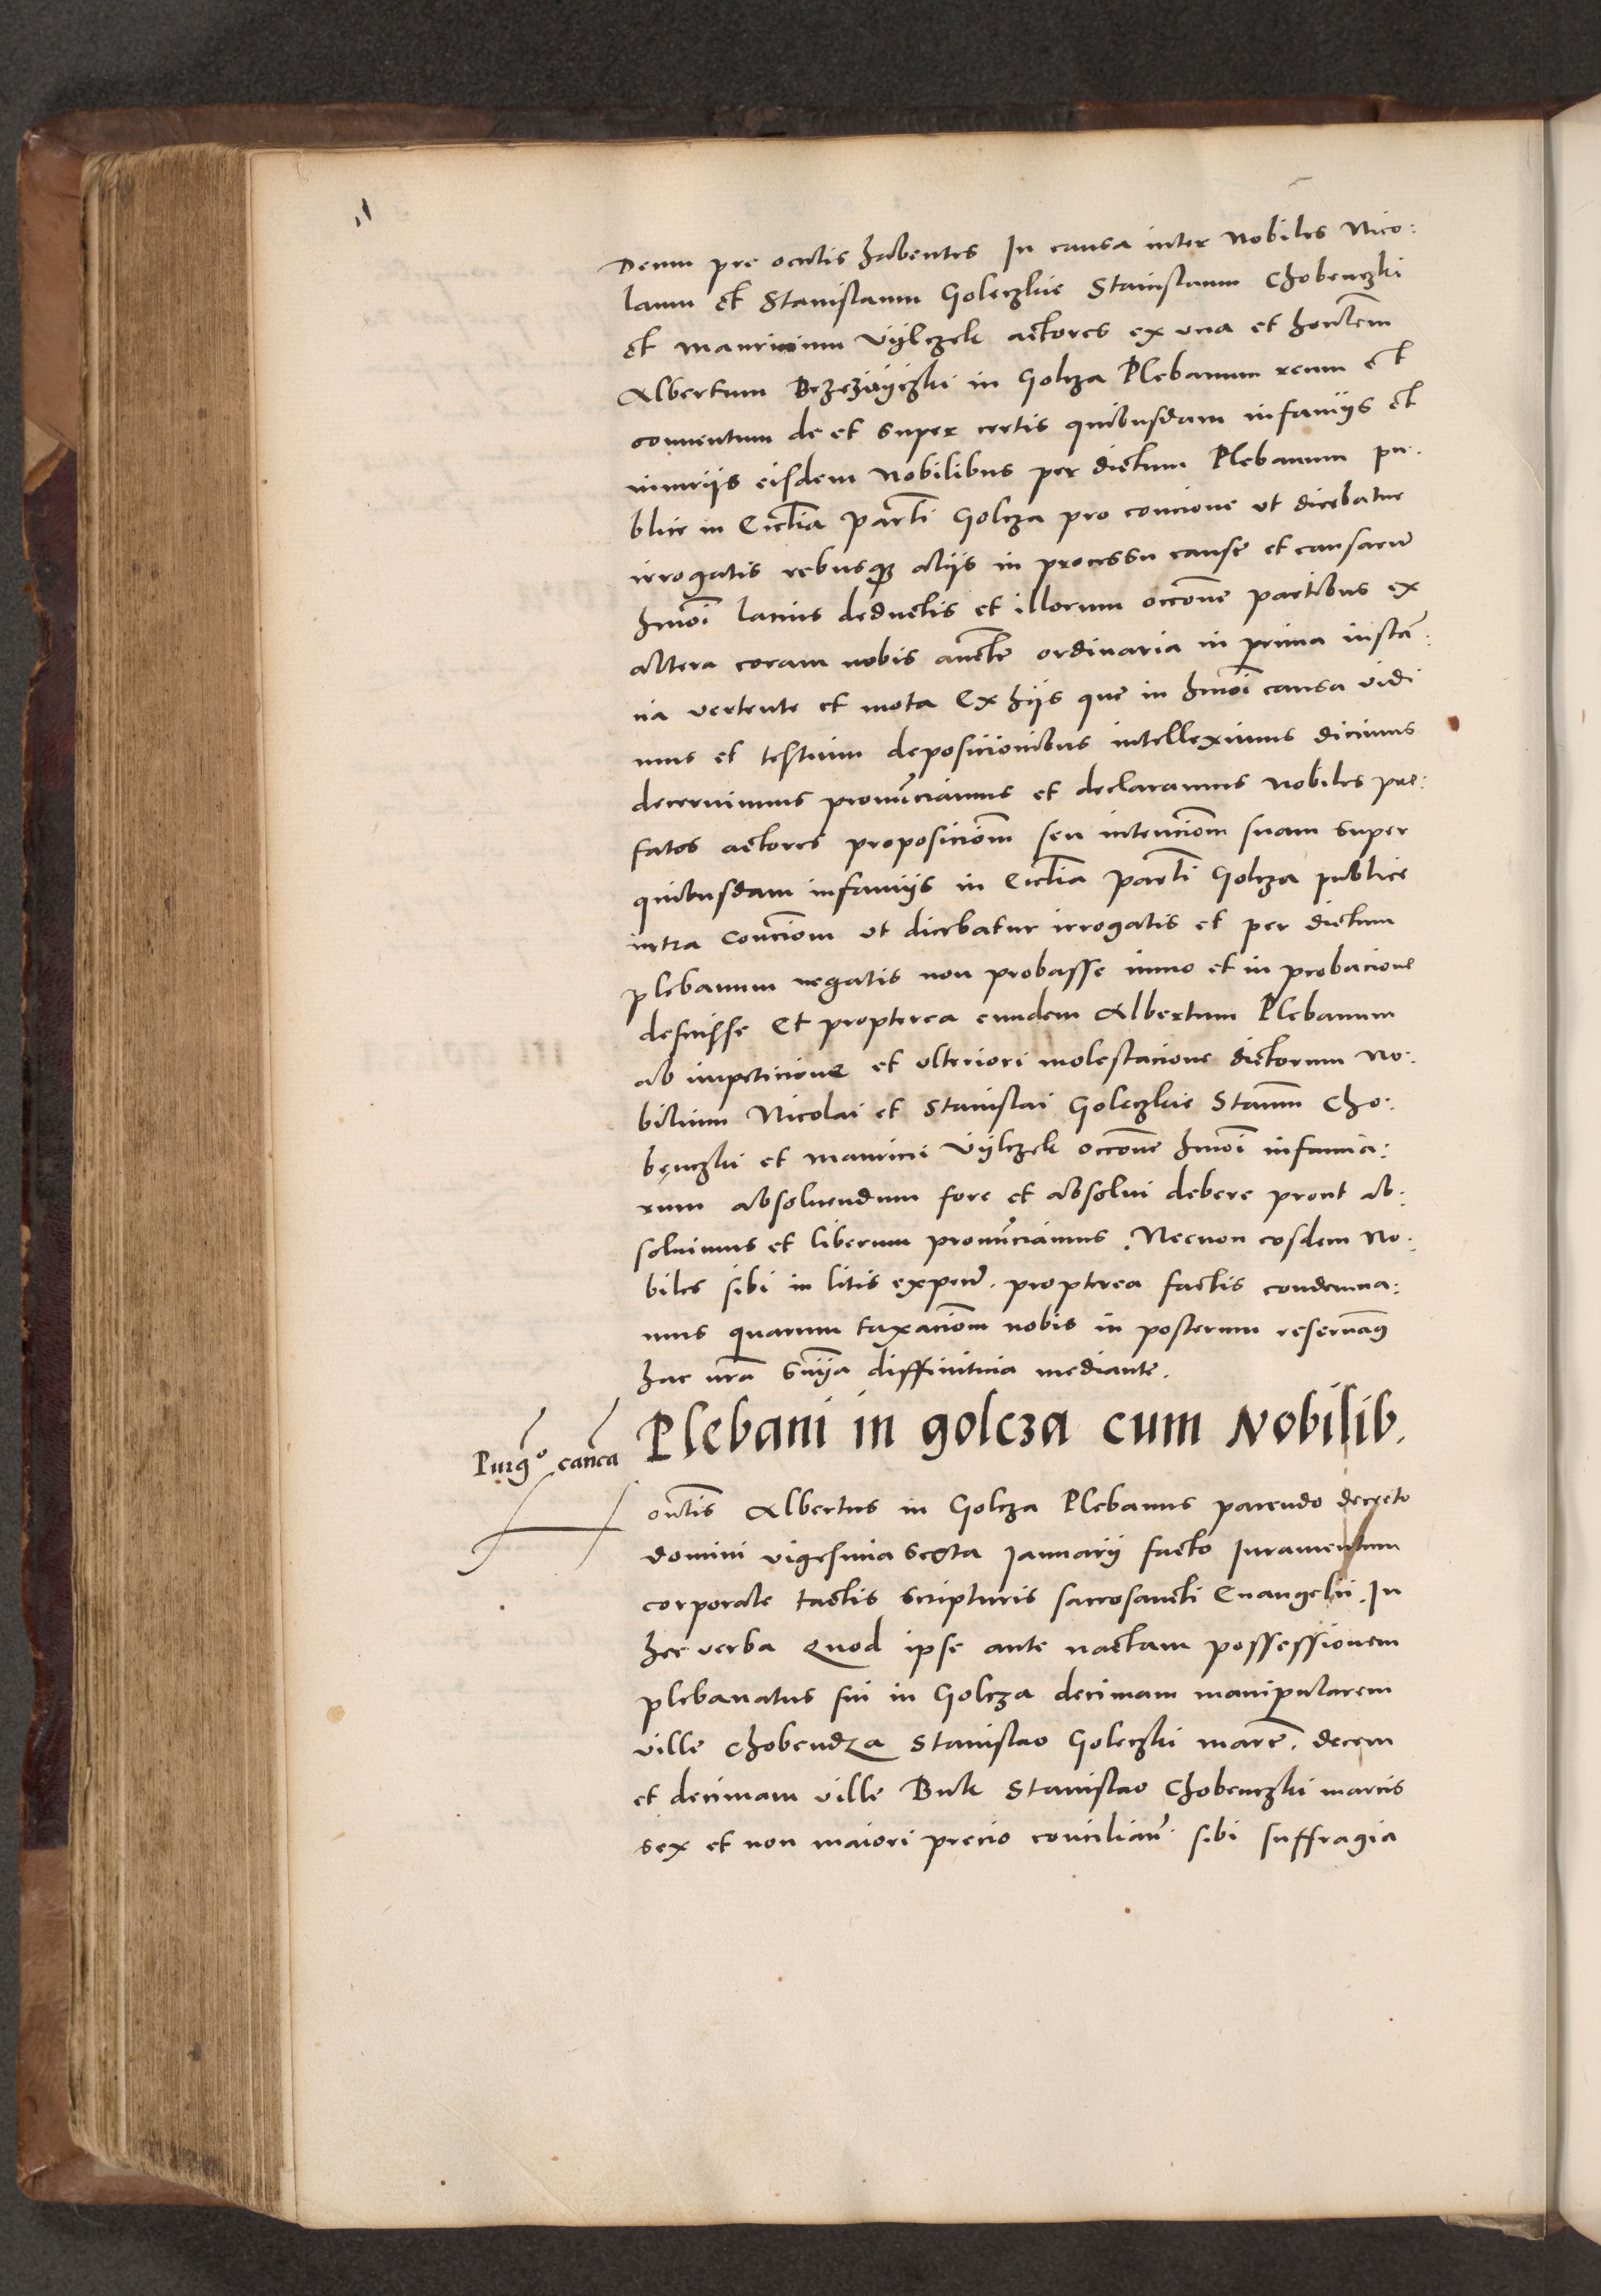 Deum pre oculis habentes In causa inter Nobiles Nico:
laum et Stanislaum Goleczkie Stanislaum Chobenczki
et Mauricium Vylczek actores ex vna et hon̄lem
Albertum Brzezÿczki in Golcza Plebanum reum et
conuentum de et super certis quibusdam infamÿs et
iniurÿs eisdem Nobilibus per dictum Plebanum pu:
blice in Eccl̄ia Par̄li Golcza pro concione vt dicebatur
irrogatis rebusq̨ alÿs in processu cause et causarū
hmōi latius deductis et illorum occōne partibus ex
altera coram nobis auctē ordinaria in prima instā:
tia vertente et mota Ex hÿs que in hmōi causa vidi
mus et testium deposicionibus intelleximus dicimus
decernimus pronūciamus et declaramus Nobiles pre:
fatos actores proposiciōm seu intenciōm suam super
quibusdam infamÿs in Eccl̄ia Par̄li Golcza publice
intra Conciōm vt dicebatur irrogatis et per dictum
plebanum negatis non probasse immo et in probacione
defuisse Et propterea eundem Albertum Plebanum
ab impeticione et vlteriori molestacione dictorum No:
bilium Nicolai et Stanislai Goleczkie Stan̄m Cho:
bęnczki et Mauricii Vylczek occōne hmōi infamia:
rum absoluendum fore et absolui debere prout ab:
soluimus et liberum pronūciamus. Necnon eosdem No:
biles sibi in litis expen̄. propterea factis condemna:
mus quarum taxaciōm nobis in posterum reseruan̄
hac nr̄a Sn̄ÿa diffinitiua mediante.
Plebani in golcza cum Nobilib.
Purg° can̄ca
on̄lis Albertus in Golcza Plebanus parendo decreto
domini vigesima sexta Januarÿ facto Iuramentum
corporale tactis scripturis sacrosancti Euangelii. In
hec verba Quod ipse ante nactam possessionem
plebanatus sui in Golcza decimam manipularem
ville Chobendza Stanislao Goleczki marc̄. decem
et decimam ville Buk Stanislao Chobenczki marcis
sex et non maiori precio concilian̄ sibi suffragia